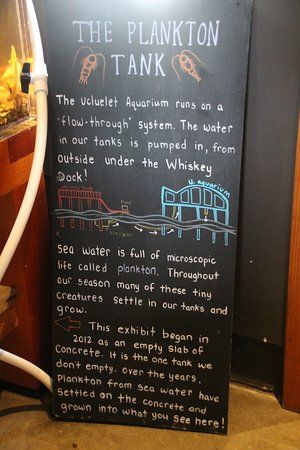 THE PLANKTON
TANK
The Ucluelet Aquarium runs on a
"flow-through" system. The water
in our tanks is pumped in, from
outside under the Whiskey
Dock!
Whiskey Dock
U. aquarium
Sea water is full of microscopic
life called plankton. Throughout
our season many of these tiny
creatures settle in our tanks and
grow.
This exhibit began in
2012 as an empty slab of
Concrete. It is the one tank we
don't empty. Over the years,
Plankton from sea water have
Settled on the concrete and
grown into what you see here!